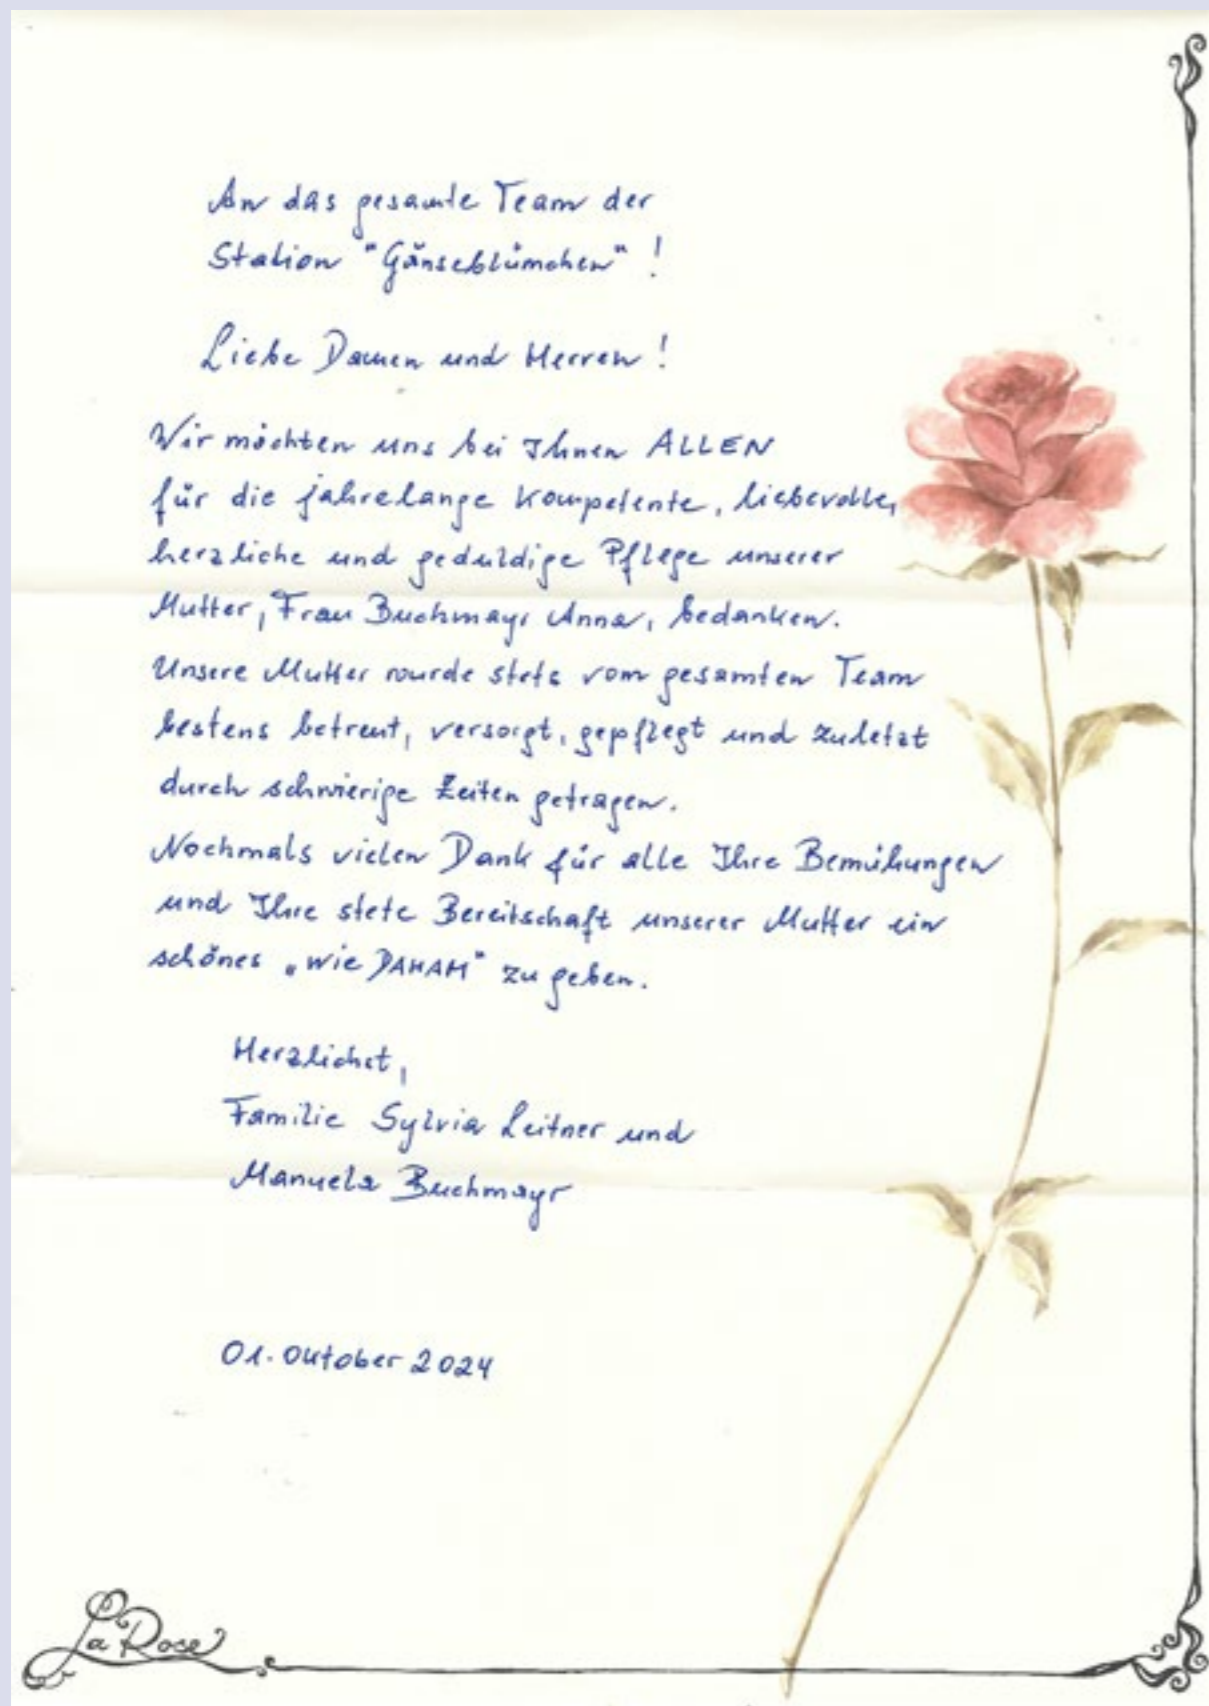 An das gesamte Team der
Station "Gänseblümchen" !
Liebe Damen und Herren !
Wir möchten uns bei Ihnen ALLEN
für die jahrelange kompetente, liebevolle,
herzliche und geduldige Pflege unserer
Mutter, Frau Buchmayr Anna, bedanken.
Unsere Mutter wurde stets vom gesamten Team
bestens betreut, versorgt, gepflegt und zuletzt
durch schwierige Zeiten getragen.
Nochmals vielen Dank für alle Ihre Bemühungen
und Ihre stete Bereitschaft unserer Mutter ein
schönes „wie DAHAM" zu geben.
Herzlichst,
Familie Sylvia Leitner und
Manuela Buchmayr
01. Oktober 2024
La Rose